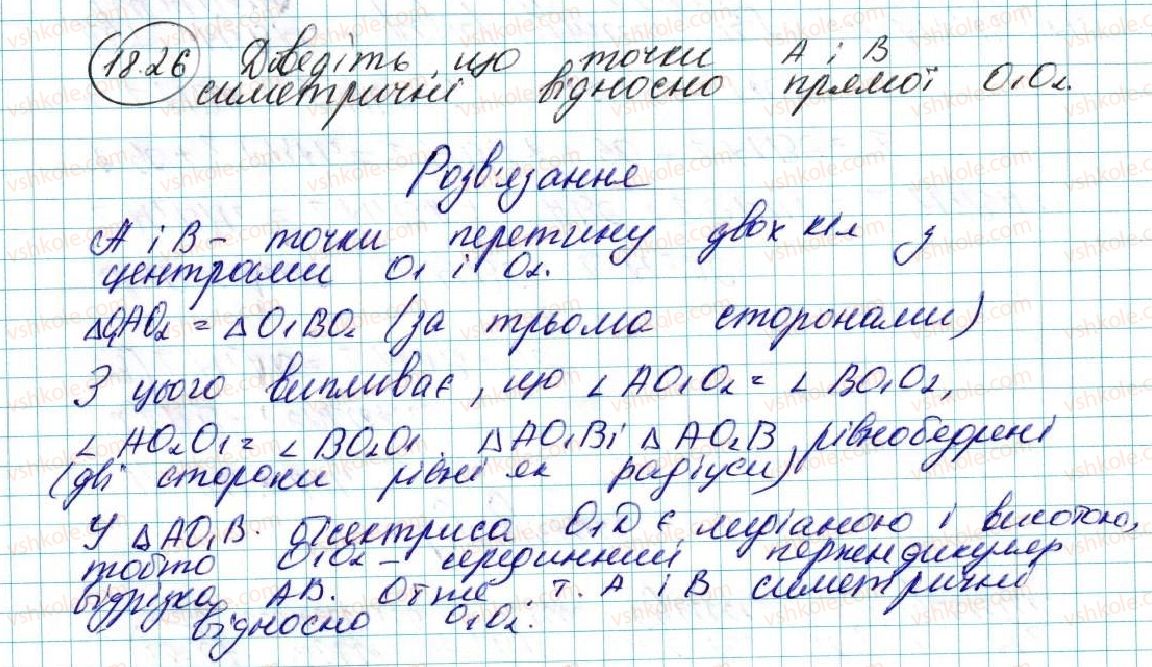 18.26 Доведіть, що точки А і В
симетричні відносно прямої O₁O₂.
Розв'язання
А і В - точки перетину двох кіл з
центрами O₁ і O₂.
△O₁AO₂ = △O₁BO₂ (за трьома сторонами)
З цього випливає, що ∠AO₁O₂ = ∠BO₁O₂,
∠AO₂O₁ = ∠BO₂O₁. △AO₁B і △AO₂B рівнобедрені
(дві сторони рівні як радіуси)
У △AO₁B. бісектриса O₁D є медіаною і висотою,
тобто O₁O₂ - серединний перпендикуляр
відрізка AB. Отже т. А і В симетричні
відносно O₁O₂.